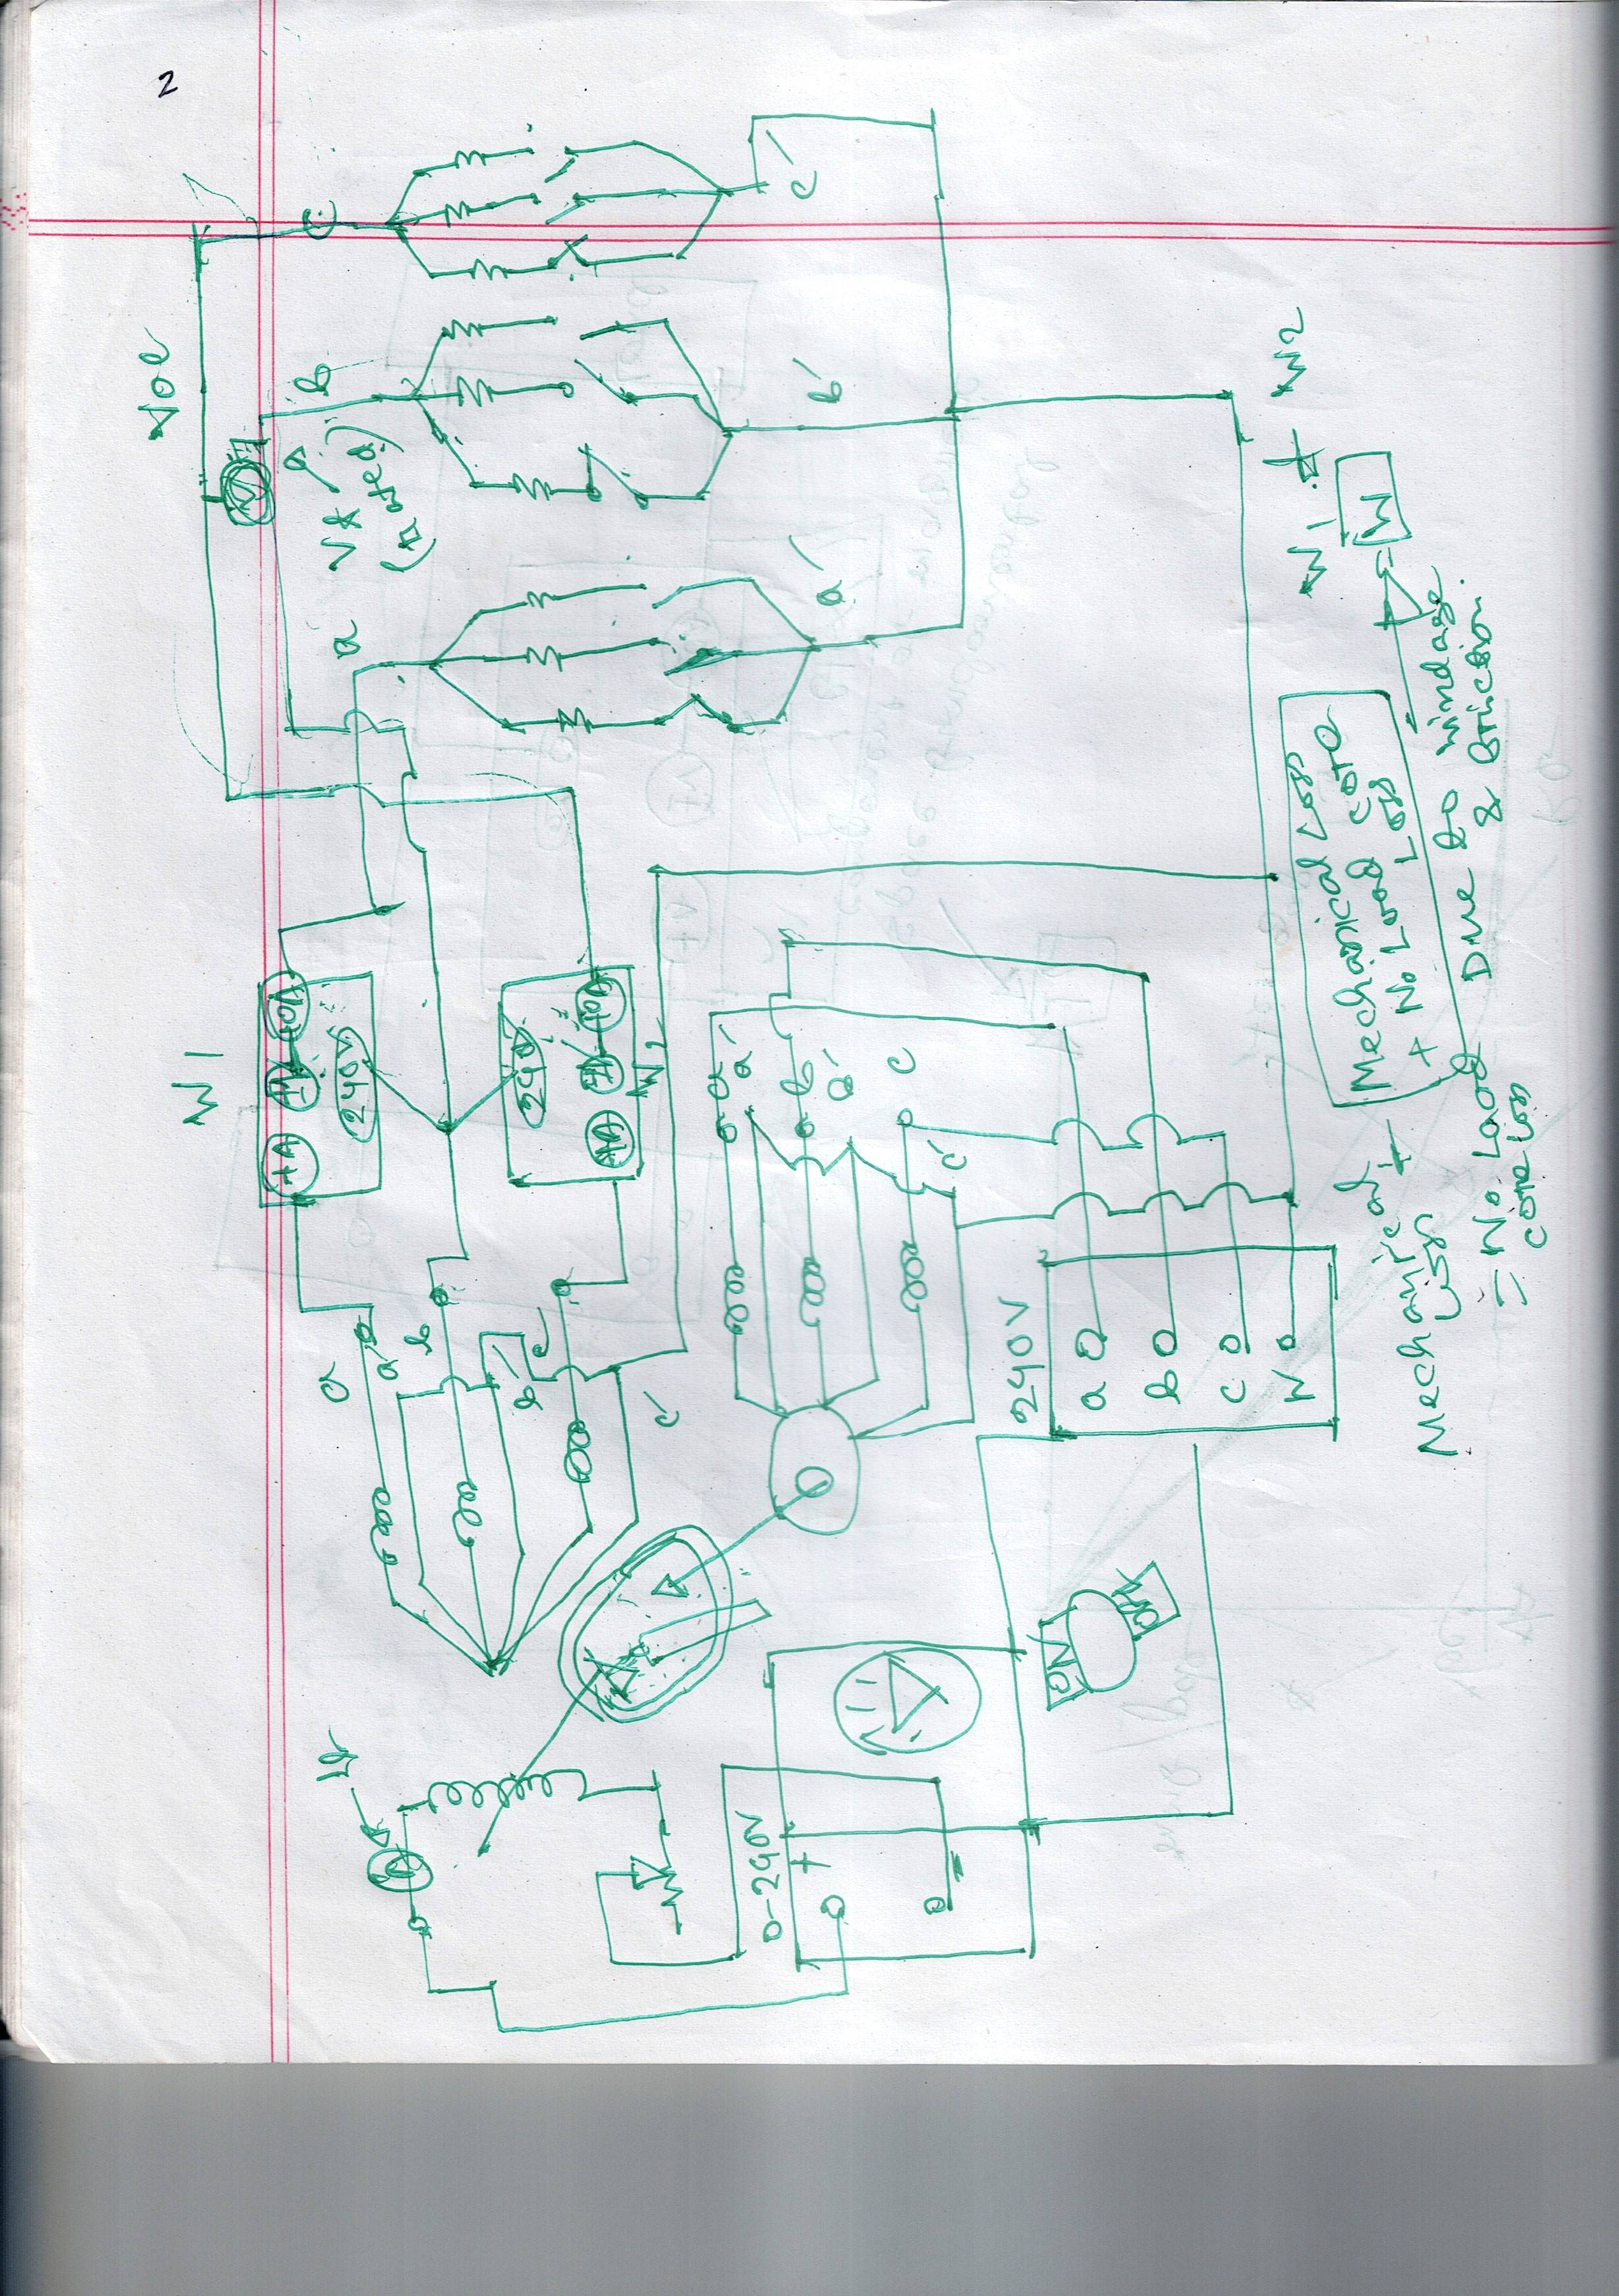 2
Voc
c
c'
b
b'
V
VR
(rated)
a
a'
W1
+A
±V
40A
240V
240V
+A
±V
W2
a
a'
b
b'
c
c'
a
a'
b
b'
c
c'
240V
a
b
c
N
If
A
0-240V
+
-
ON
OFF
W1 ± W2
W
Mechanical Loss
Mechanical core
+ No Load Loss
Due to windage
& friction.
Mechanical ±
Loss
= No Load
core Loss